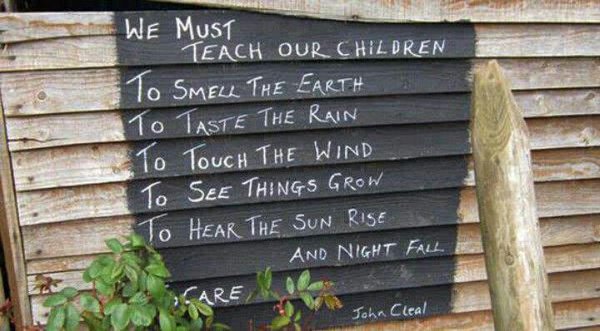 We Must
Teach our children
To Smell The Earth
To Taste The Rain
To Touch The Wind
To See Things Grow
To Hear The Sun Rise
And Night Fall
Care
John Cleal